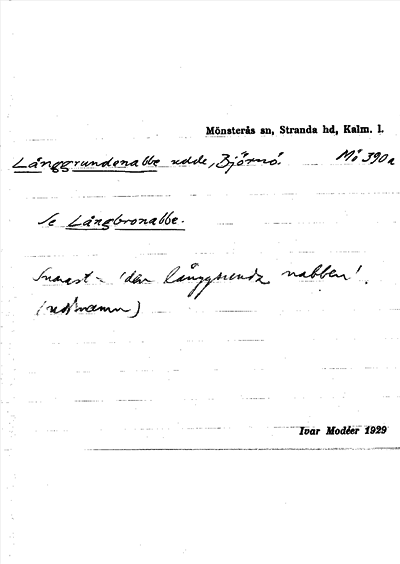 Mönsterås sn, Stranda hd, Kalm. l.
Långgrundenabbe udde, Björnö. Mö 390a
Se Långbronabbe.
Snarast = 'den långgrunda nabben'.
(uddnamn)
Ivar Modéer 1929